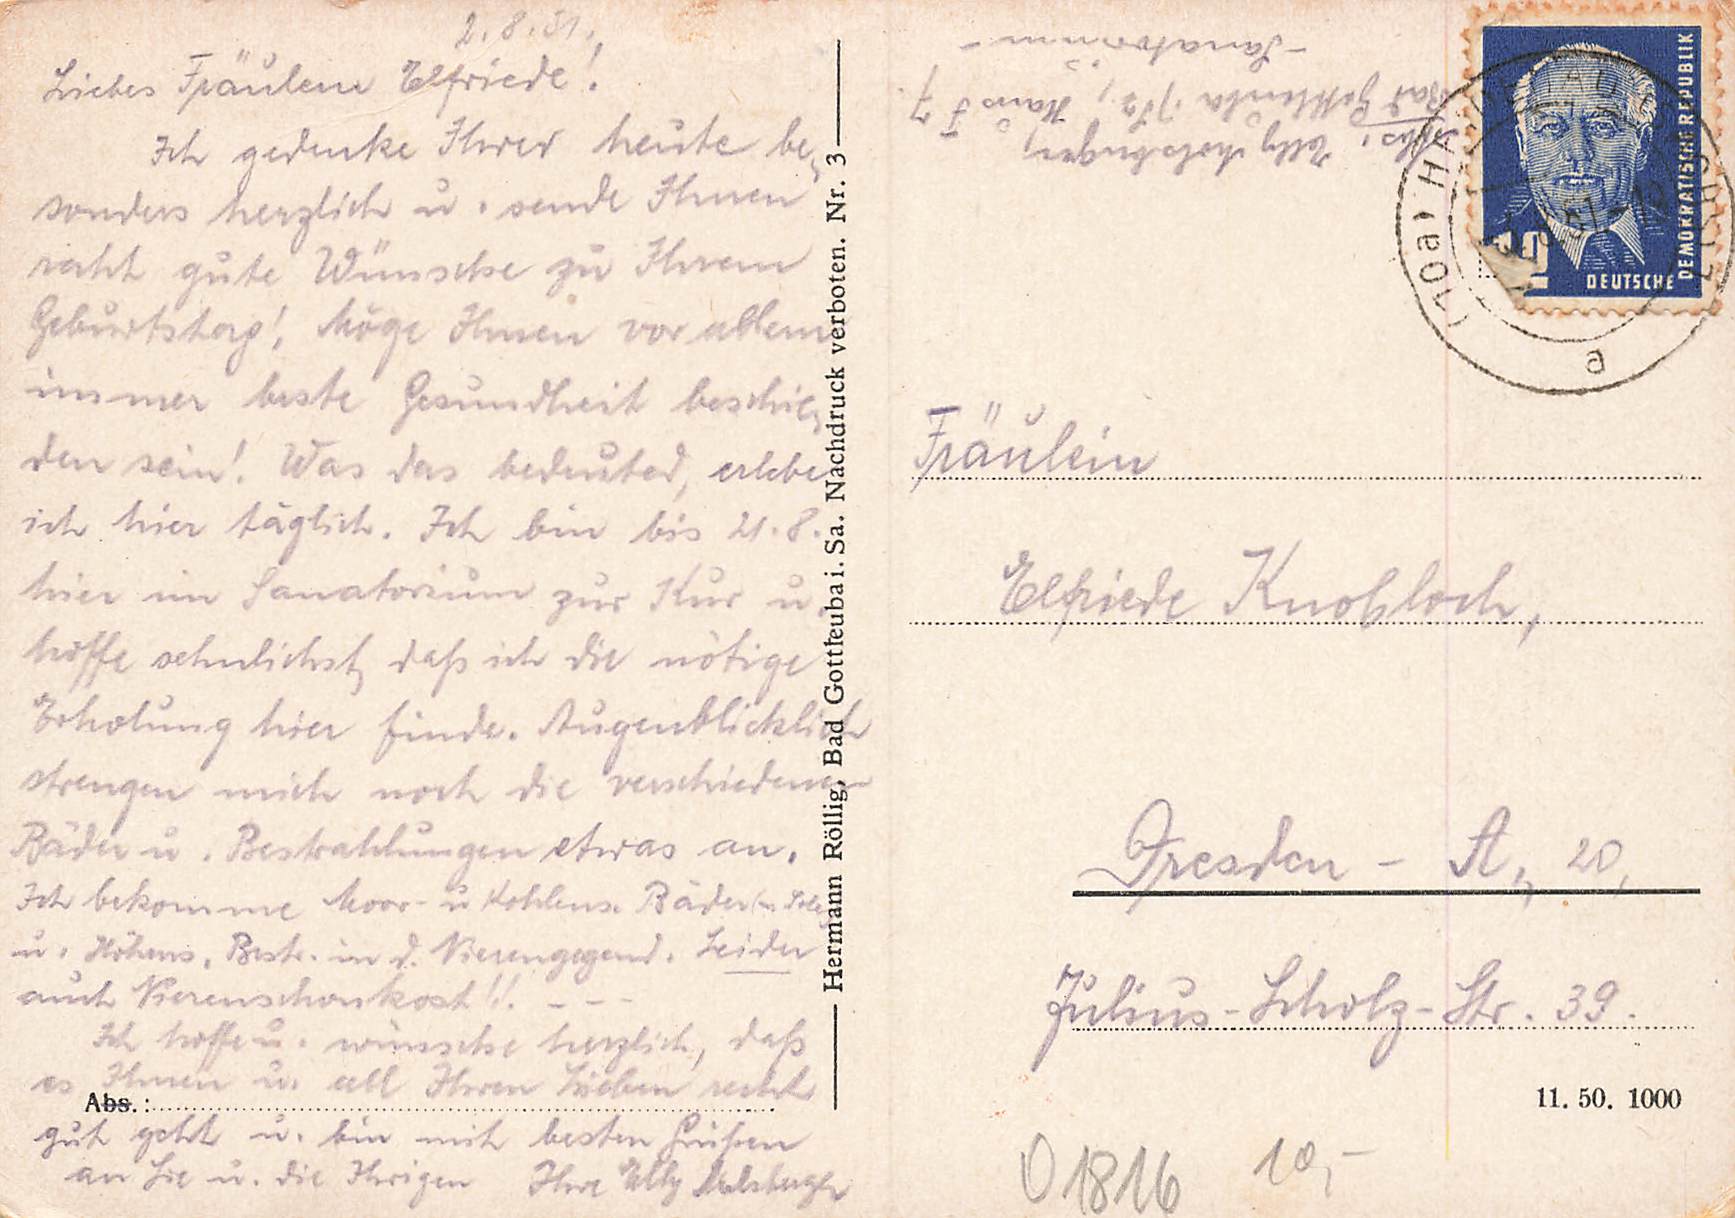 2.8.51.
Liebes Fräulein Elfriede!
Ich gedenke Ihrer heute be-
sonders herzlich u. sende Ihnen
recht gute Wünsche zu Ihrem
Geburtstag! Möge Ihnen vor allem
immer beste Gesundheit beschie-
den sein! Was das bedeuted, erlebe
ich hier täglich. Ich bin bis 21.8.
hier im Sanatorium zur Kur u.
hoffe sehnlichst, daß ich die nötige
Erholung hier finde. Augenblicklich
strengen mich noch die verschiedenen
Bäder u. Bestrahlungen etwas an.
Ich bekomme Moor- u. Kohlens. Bäder
u. Höhens. Bestr. in d. Nierengegend. Leider
auch Nierenschonkost!! - - -
Ich hoffe u. wünsche herzlich, daß
es Ihnen u. all Ihren Lieben recht
Abs.:
gut geht u. bin mit besten Grüßen
an Sie u. die Ihrigen Ihre Elly
Hermann Röllig, Bad Gottleuba i. Sa. Nachdruck verboten. Nr. 3
Abs. Elly
Bad Gottleuba Haus F 7
- Sanatorium -
DEUTSCHE
DEMOKRATISCHE REPUBLIK
(10a)
a
Fräulein
Elfriede Knobloch,
Dresden - A, 20,
Julius-Scholz-Str. 39.
11. 50. 1000
01816 10,-